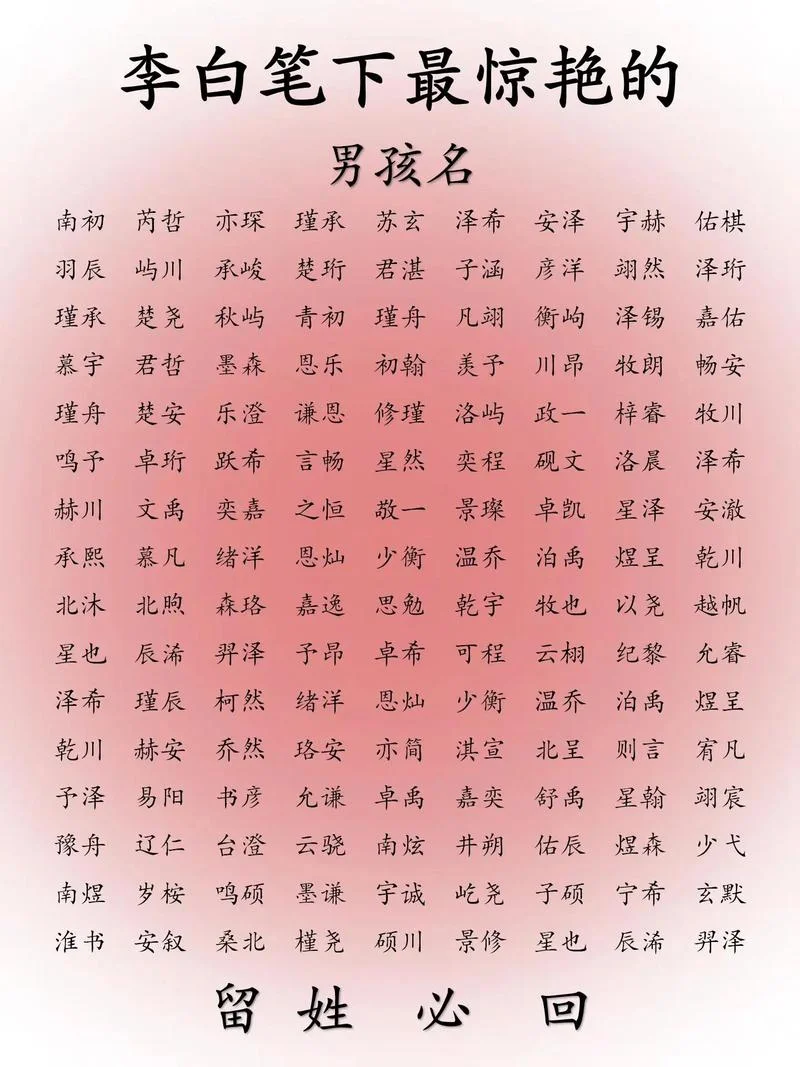 李白笔下最惊艳的
男孩名
南初 芮哲 亦琛 瑾承 苏玄 泽希 安泽 宇赫 佑棋
羽辰 屿川 承峻 楚珩 君湛 子涵 彦洋 翊然 泽珩
瑾承 楚尧 秋屿 青初 瑾舟 凡翊 衡岣 泽锡 嘉佑
慕宇 君哲 墨森 恩乐 初翰 羡予 川昂 牧朗 畅安
瑾舟 楚安 乐澄 谦恩 修瑾 洛屿 政一 梓睿 牧川
鸣予 卓珩 跃希 言畅 星然 奕程 砚文 洛晨 泽希
赫川 文禹 奕嘉 之恒 敬一 景璨 卓凯 星泽 安澈
承熙 慕凡 绪洋 恩灿 少衡 温乔 泊禹 煜呈 乾川
北沐 北煦 森珞 嘉逸 思勉 乾宇 牧也 以尧 越帆
星也 辰浠 羿泽 予昂 卓希 可程 云栩 纪黎 允睿
泽希 瑾辰 柯然 绪洋 恩灿 少衡 温乔 泊禹 煜呈
乾川 赫安 乔然 珞安 亦简 淇宣 北呈 则言 宥凡
予泽 易阳 书彦 允谦 卓禹 嘉奕 舒禹 星翰 翊宸
豫舟 辽仁 台澄 云骁 南炫 井朔 佑辰 煜森 少弋
南煜 岁桉 鸣硕 墨谦 宇诚 屹尧 子硕 宁希 玄默
淮书 安叙 桑北 槿尧 硕川 景修 星也 辰浠 羿泽
留姓必回